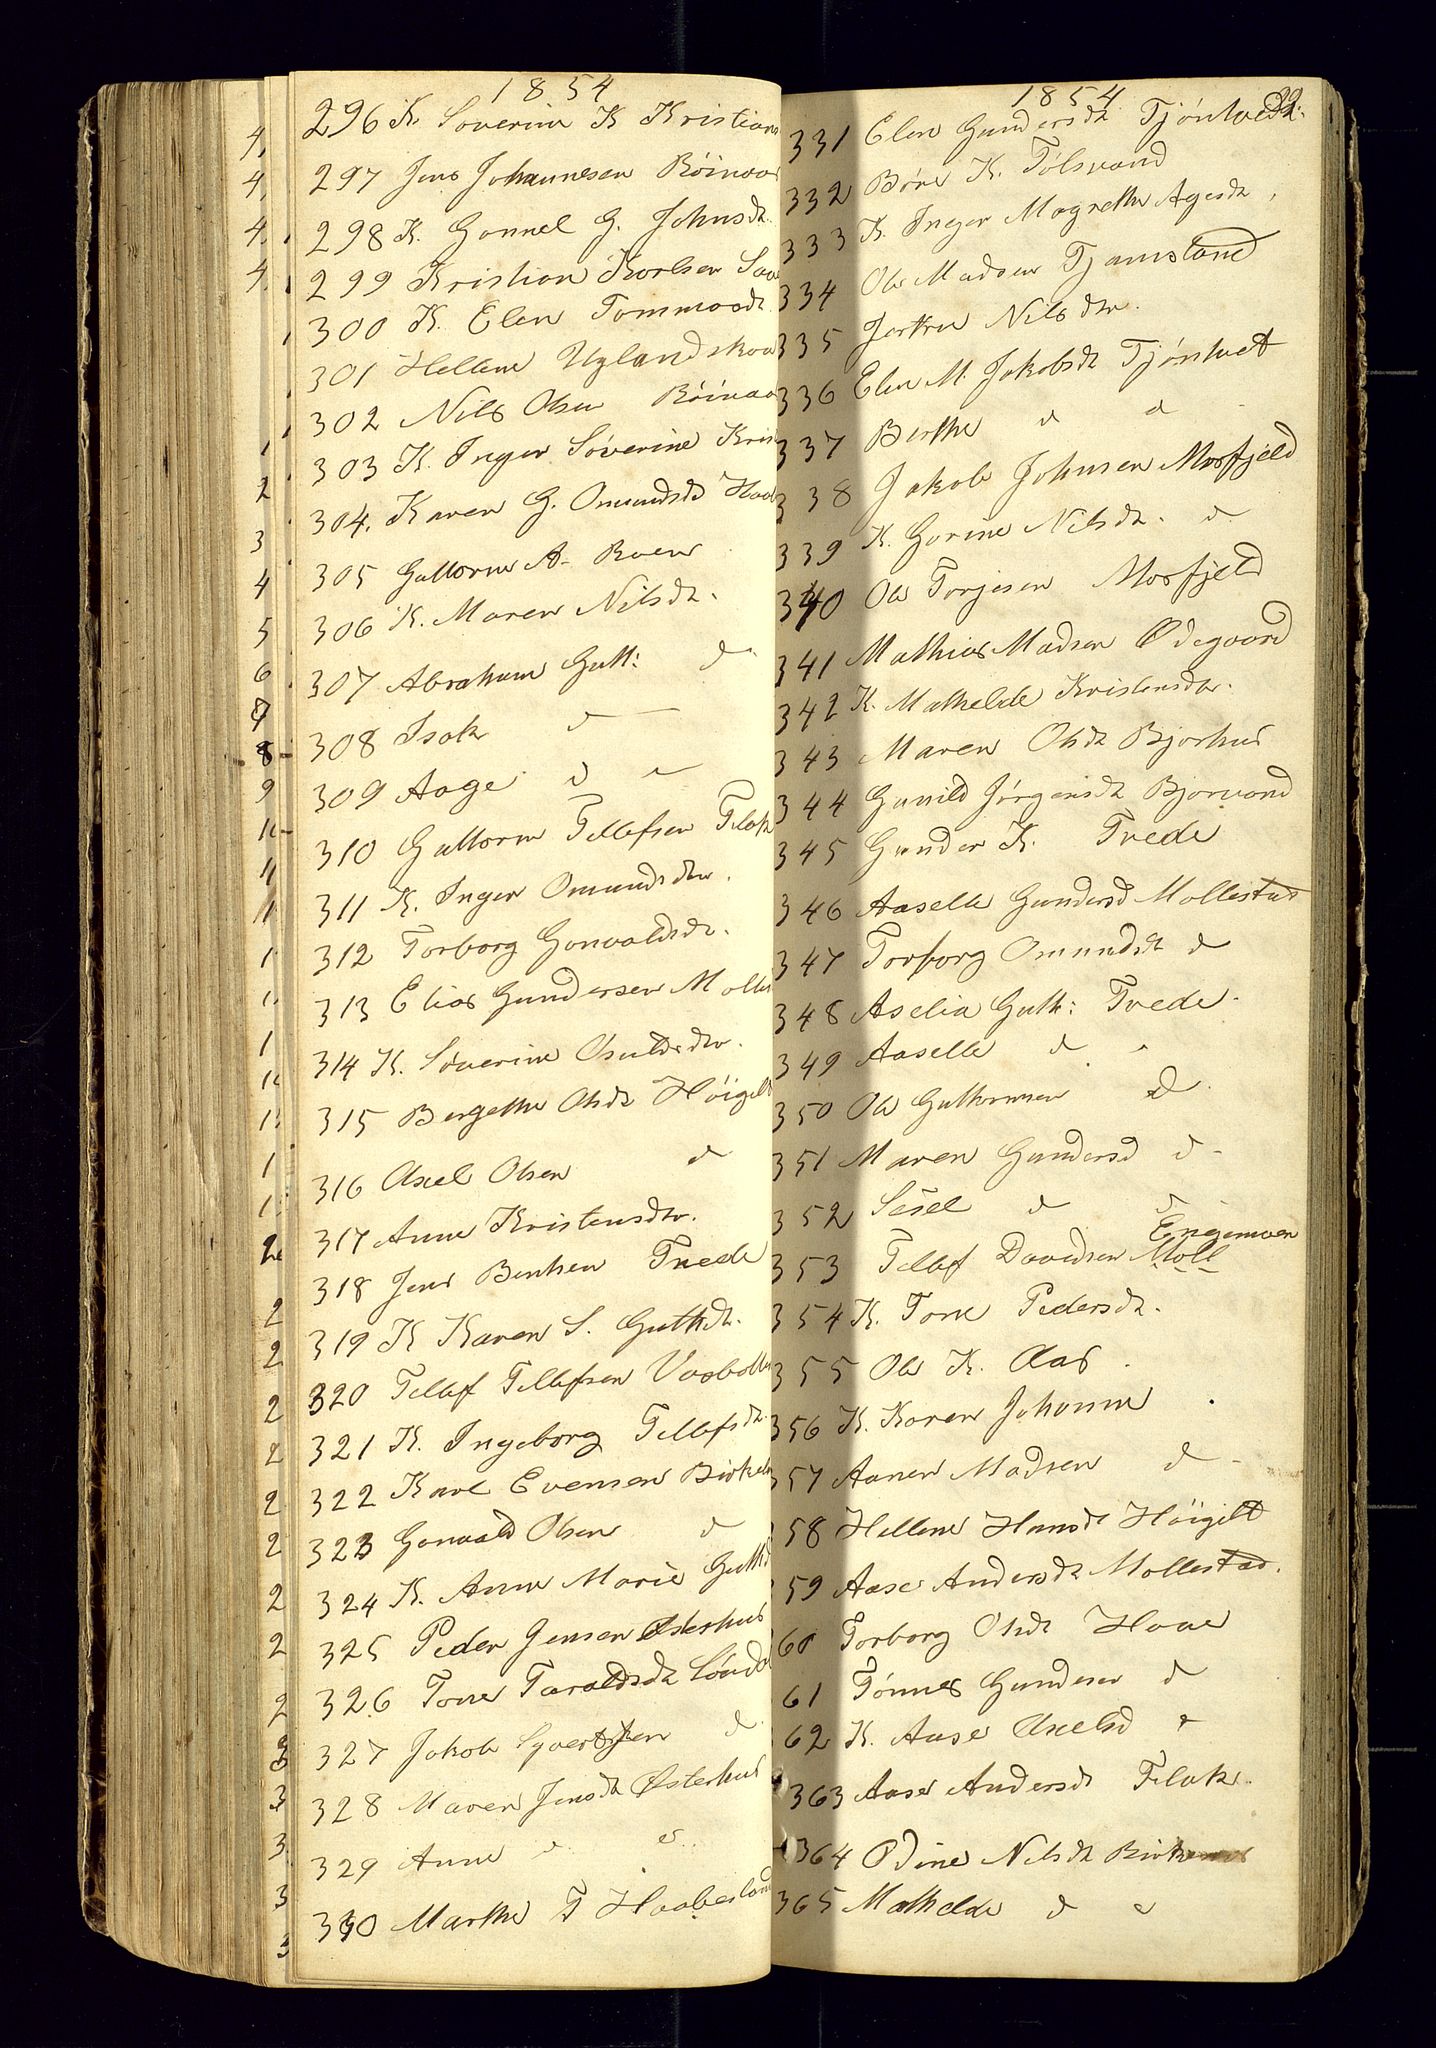 1854
296 K. Soverine K Kristians
297 Jens Johannesen Röinaas
298 K. Gonnel G. Johnsdt.
299 Kristian Karlsen
300 K. Elen Tommasdt
301 Hellene Uglandskaa
302 Nils Olsen Röinaa
303 K. Inger Söverine Kris
304. Karen G. Omundsdt Haa
305 Guttorm A. Roen
306 K. Maren Nilsdt.
307 Abraham Gutt: d
308 Isak d —
309 Aage d —
310 Guttorm Tellefsen Flak
311 K. Inger Omundsdtr.
312 Torborg Gonvaldsdt.
313 Elias Gundersen Molles
314 K. Söverine Osuldsdtr.
315 Bergethe Olsdt Höigilt
316 Axel Olsen d
317 Anne Kristensdtr.
318 Jens Bentsen Trede
319 K Karen S. Guthdt.
320 Tellef Tellefsen Vasbotten
321 K. Ingeborg Tellefsdt.
322 Karl Evensen Birkeln
323 Gonvald Olsen d
324 K. Anne Marie Guthd
325 Peder Jensen Østerhus
326 Tone Taraldsdt Löndal
327 Jakob Syvertsen d
328 Maren Jensdt Østerhus
329 Anne d d
330 Marthe T Haabesland
1854
331 Elen Gundersdt Tjöntvedt.
332 Böre K. Tölsvand
333 K. Inger Magrethe Agesdt
334 Ole Madsen Tjamsland
335 Jertru Nilsdtr.
336 Elen M. Jakobsdt Tjöntvet
337 Berthe d d
338 Jakob Johnsen Mosfjeld
339 K. Gorine Nilsdt. d
340 Ole Torjesen Mosfjeld
341 Mathias Madsen Ødegaard
342 K. Mathelde Kristensdtr.
343 Maren Olsdt Bjorhus
344 Gunild Jörgensdt Bjorvand
345 Gunder K. Trede
346 Aaselle Gundersd Mollestad
347 Torborg Omundsdt d
348 Aselia Guth: Trede.
349 Aaselle d "
350 Ole Guthormsen D.
351 Maren Gundersd d
352 Sesel d d
353 Tellef Davidsen Engemoen Moll
354 K. Tone Pedersdt.
355 Ole K. Aas
356 K. Karen Johanne
357 Aanen Madsen d
58 Hellene Hansdt Höigilt
59 Aase Andersdt Mollestad.
60 Torborg Olsdt Haae
61 Tönnes Gundersen d
62 K. Aase Axelsd d
363 Aase Andersdt Flak.
364 Odine Nilsdt
365 Mathelde d d